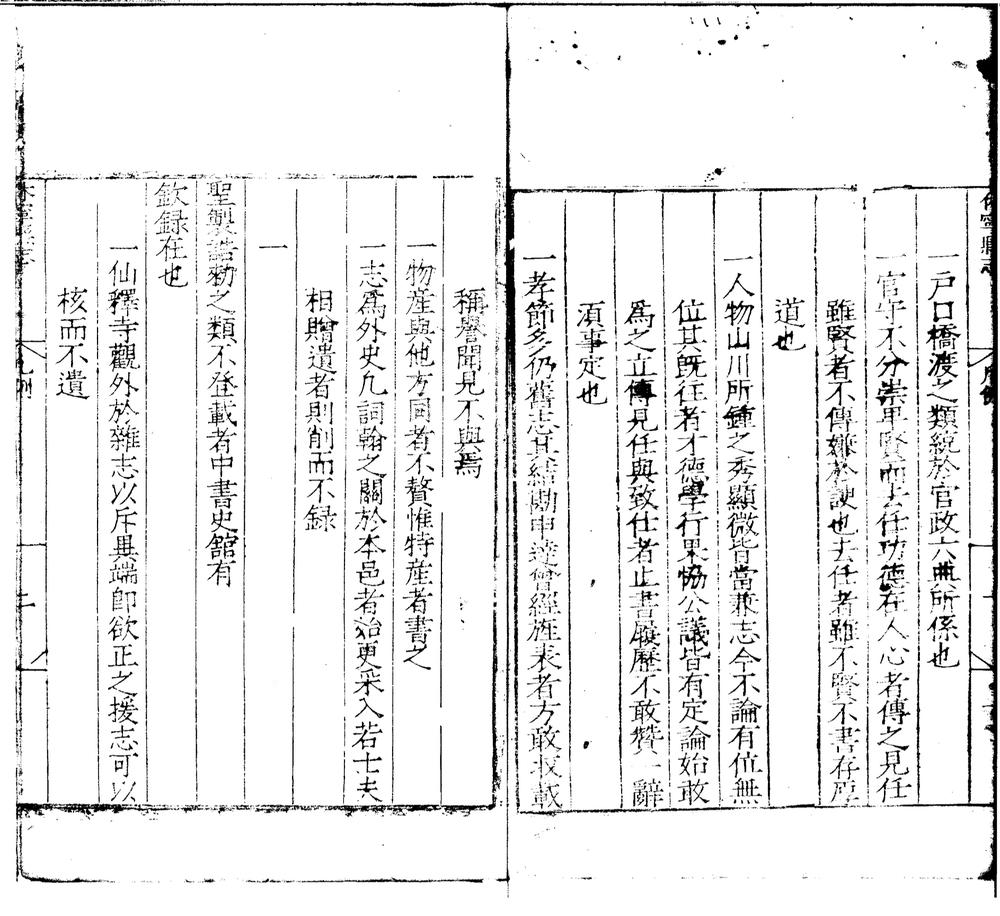 一戶口橋渡之類統於官政六典所係也
一官守不分崇卑賢而去任功德在人心者傳之見任
雖賢者不傳嫌於諛也去任者雖不賢不書存厚
道也
一人物山川所鍾之秀顯微皆當兼志今不論有位無
位其既往者才德學行果協公議皆有定論始敢
爲之立傳見任與致仕者止書履歷不敢贊一辭
須事定也
一孝節多仍舊志其結勘申達曾經旌表者方敢收載
稱譽聞見不與焉
一物産與他方同者不贅惟特産者書之
一志爲外史凡詞翰之關於本邑者治更采入若士夫
相贈遺者則削而不録
一
聖製誥勑之類不登載者中書史舘有
欽録在也
一仙釋寺觀外於雜志以斥異端卽欲正之援志可以
核而不遺